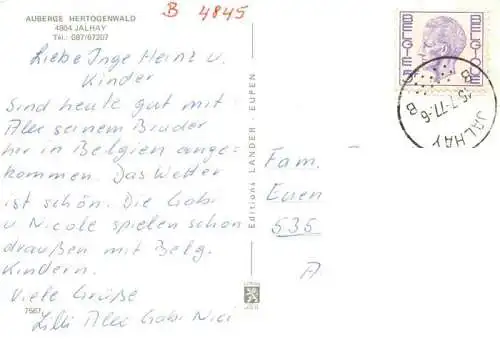 B 4845
AUBERGE HERTOGENWALD
4804 JALHAY
Tél.: 087/67207
Liebe Inge Heinz u.
Kinder
Sind heute gut mit
Alex seinem Bruder
hir in Belgien ange-
kommen. Das Wetter
ist schön. Die Gabi
u Nicole spielen schon
draußen mit Belg.
Kindern.
Viele Grüße
Lilli Alex Gabi Nici
7567
Editions LANDER - EUPEN
BELGIE BELGIQUE
JALHAY
B
5-7-77-6
B
Fam.
Euen
535
A